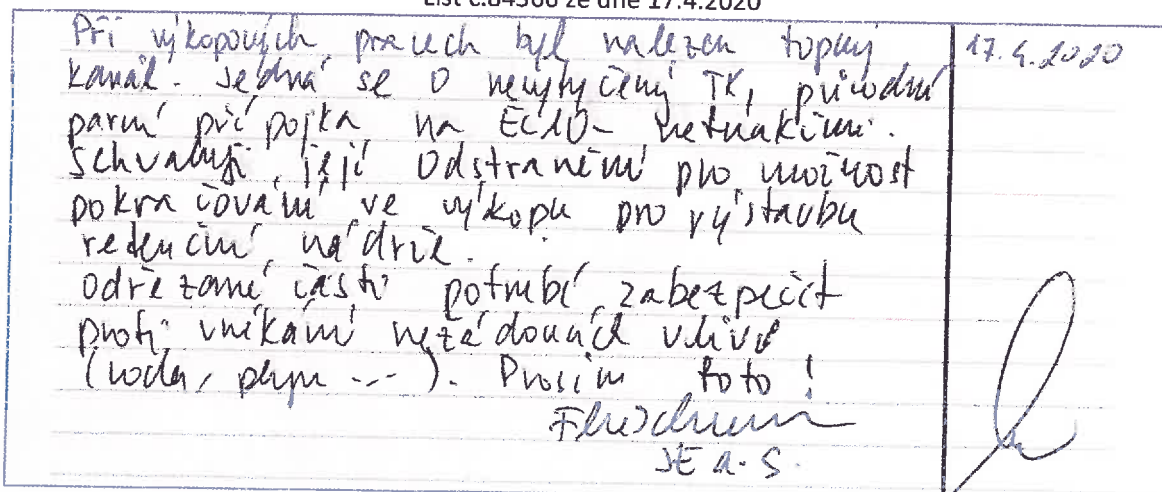 List č.84566 ze dne 17.4.2020
Při výkopových pracech byl nalezen topný
17.4.2020
kanál. Jedná se o nevytyčený TK, původní
parní přípojka na
Schvaluji její odstranění pro možnost
pokračování ve výkopu pro výstavbu
retenční nádrže.
Odřezané části potřebí zabezpečit
proti vnikání nežádoucích vlivů
(voda, plyn ...). Prosím foto!
a.s.